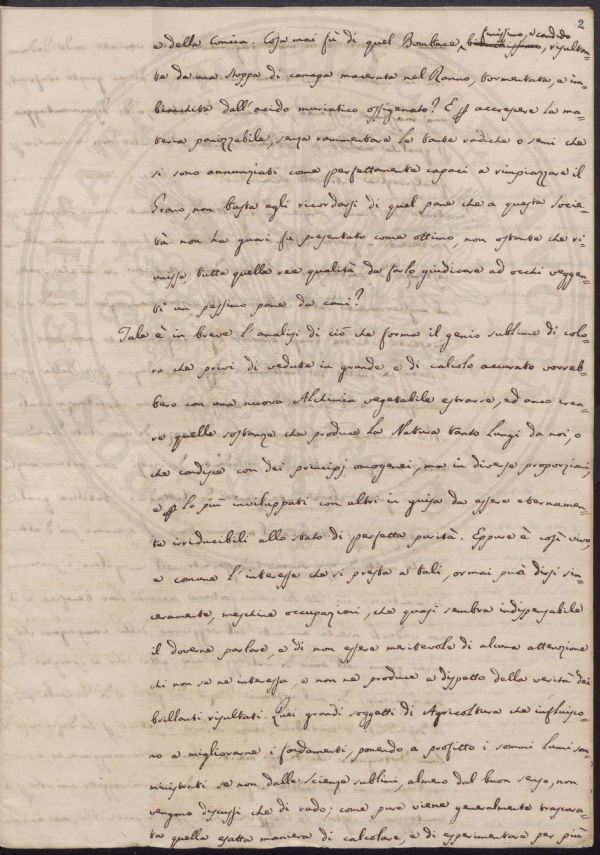 2
finissimo, e candido
e della Conica: Cosa mai fù di quel Bombace, bianchissimo, risultan-
te da una stoppa di canapa macerata nel Ranno, tormentata, e im-
bianchita dall'acido muriatico ossigenato? E per accrescere la ma-
teria panizzabile, senza rammentare le tante radiche o semi che
si sono annunziati come perfettamente capaci a rimpiazzare il
Grano, non basta egli ricordarsi di quel pane che a questa Socie-
tà non ha guari fu presentato come ottimo, non ostante che ri-
unisse tutte quelle ree qualità da farlo giudicare ad occhi veggen-
ti un pessimo pane da cani?
Tale è in breve l'analisi di ciò che forma il genio sublime di colo-
ro che privi di vedute in grande, e di calcolo accurato vorreb-
bero con una nuova Alchimia vegetabile estrarre, ed anco crea-
re quelle sostanze che produce la Natura tanto lungi da noi, o
che condisce con dei principj omogenei, ma in diverse proporzioni,
e per lo più inviluppati con altri in guisa da essere eternamen-
te irriducibili allo stato di perfetta purità. Eppure è così vivo,
e comune l'interesse che si presta a tali, ormai può dirsi sin-
ceramente, meschine occupazioni, che quasi sembra indispensabile
il doverne parlare, e di non essere meritevole di alcuna attenzione
chi non se ne interessa, e non ne produce a dispetto della verità dei
brillanti risultati. Quei grandi soggetti di Agricoltura che influisco-
no a migliorarne i fondamenti, ponendo a profitto i sommi lumi som-
ministrati se non dalle scienze sublimi, almeno dal buon senso, non
vengono discussi che di rado; come pure viene generalmente trascura-
ta quella esatta maniera di calcolare, e di esperimentare per più